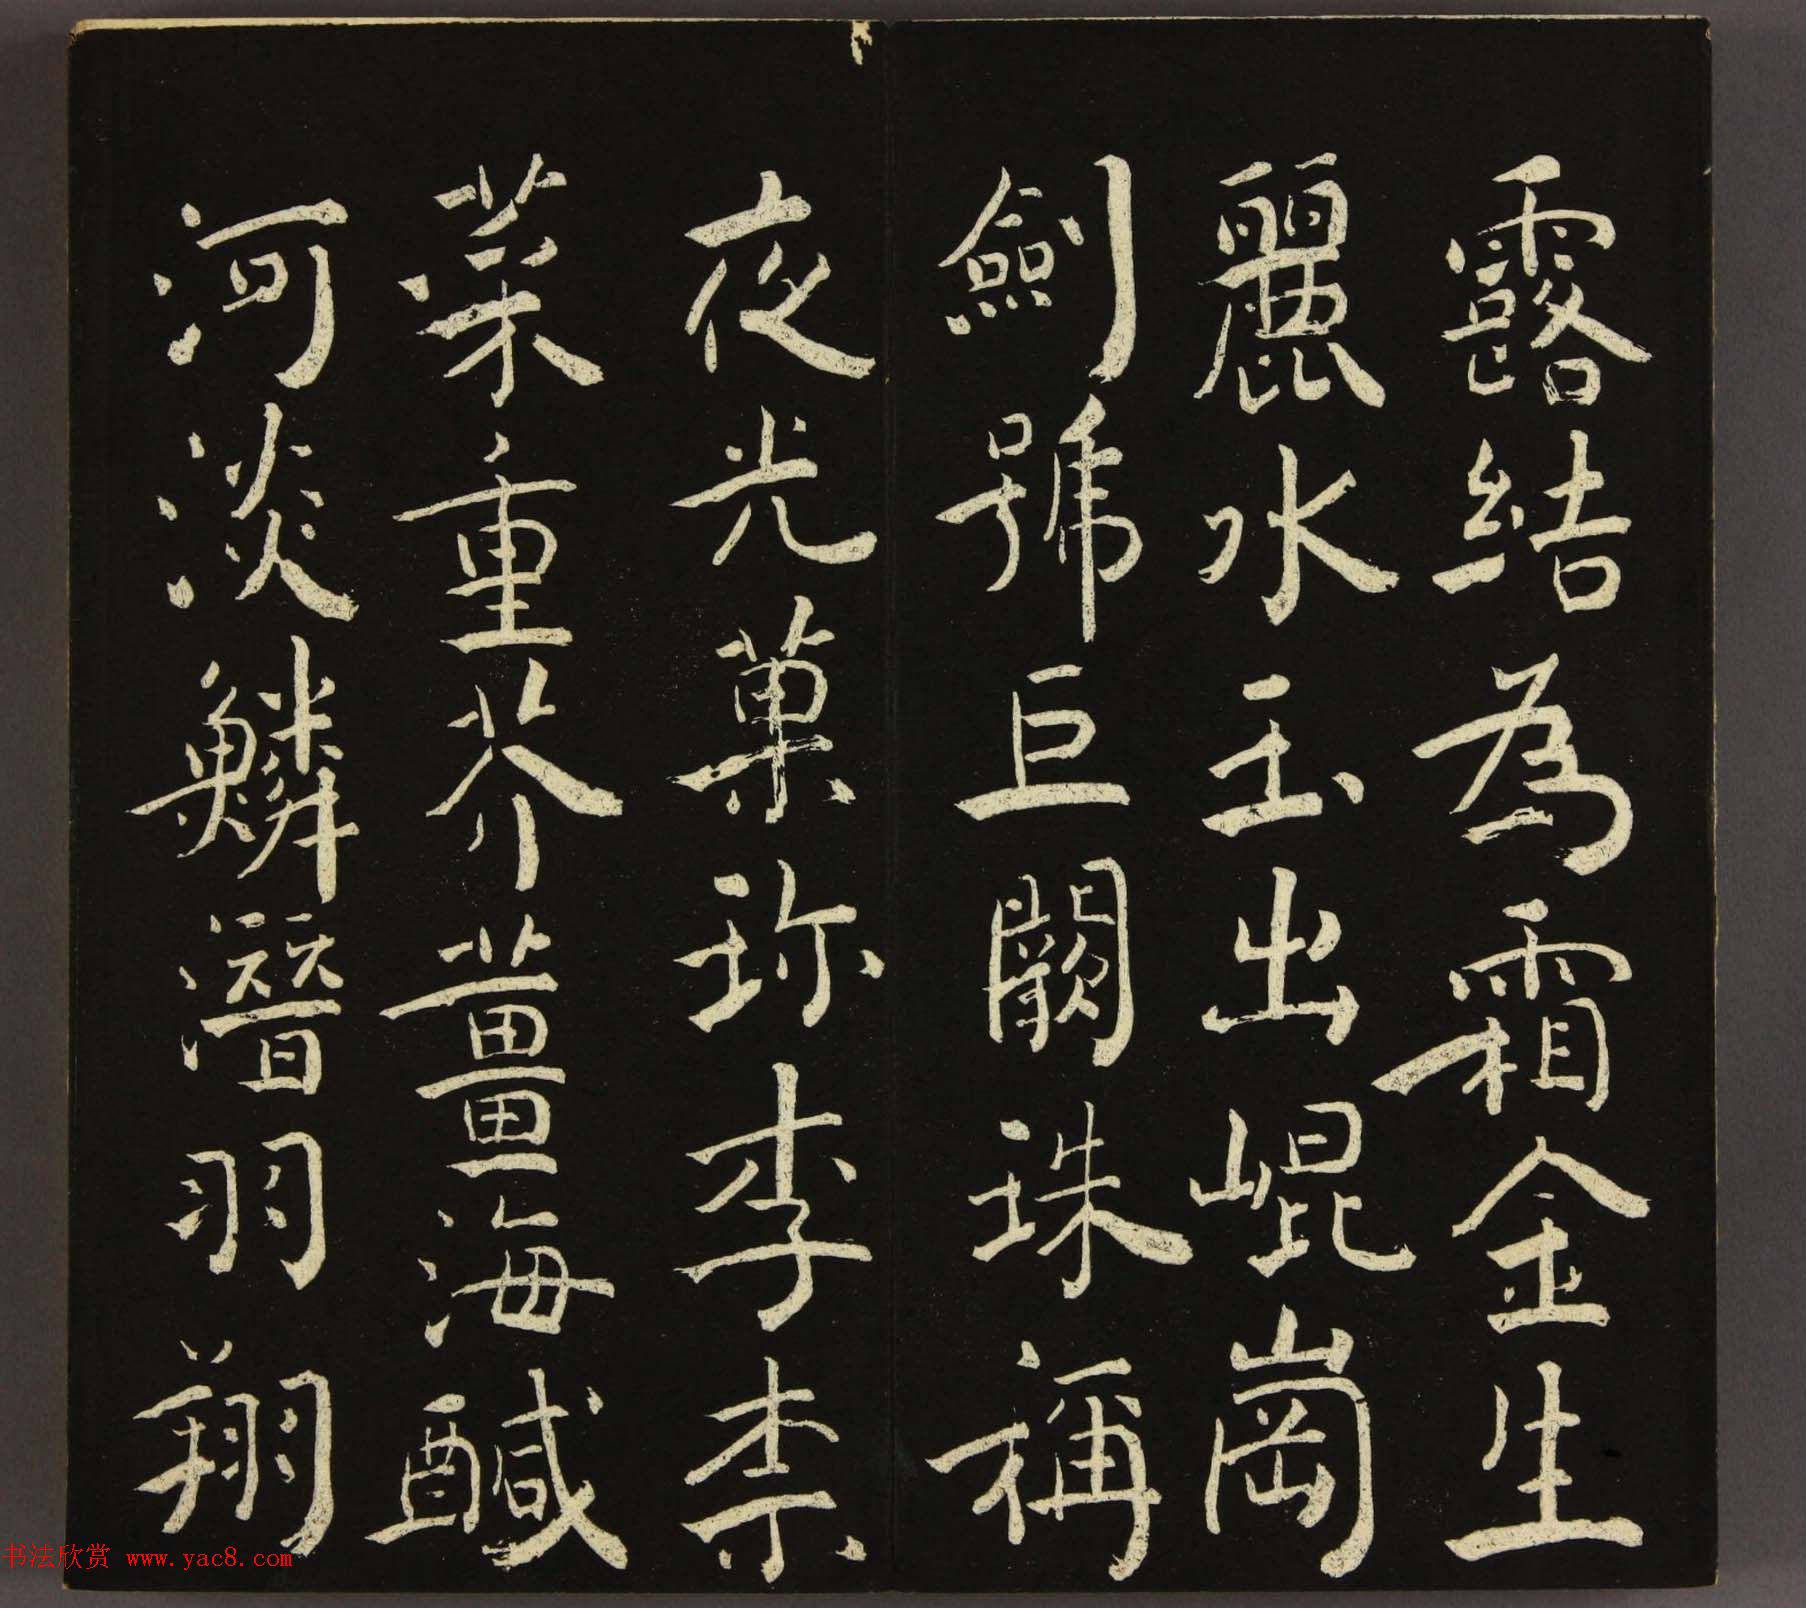 露結為霜金生
麗水玉出崐崗
劍號巨闕珠稱
夜光菓珎李柰
菜重芥薑海醎
河淡鱗潛羽翔
书法欣赏 www.yac8.com